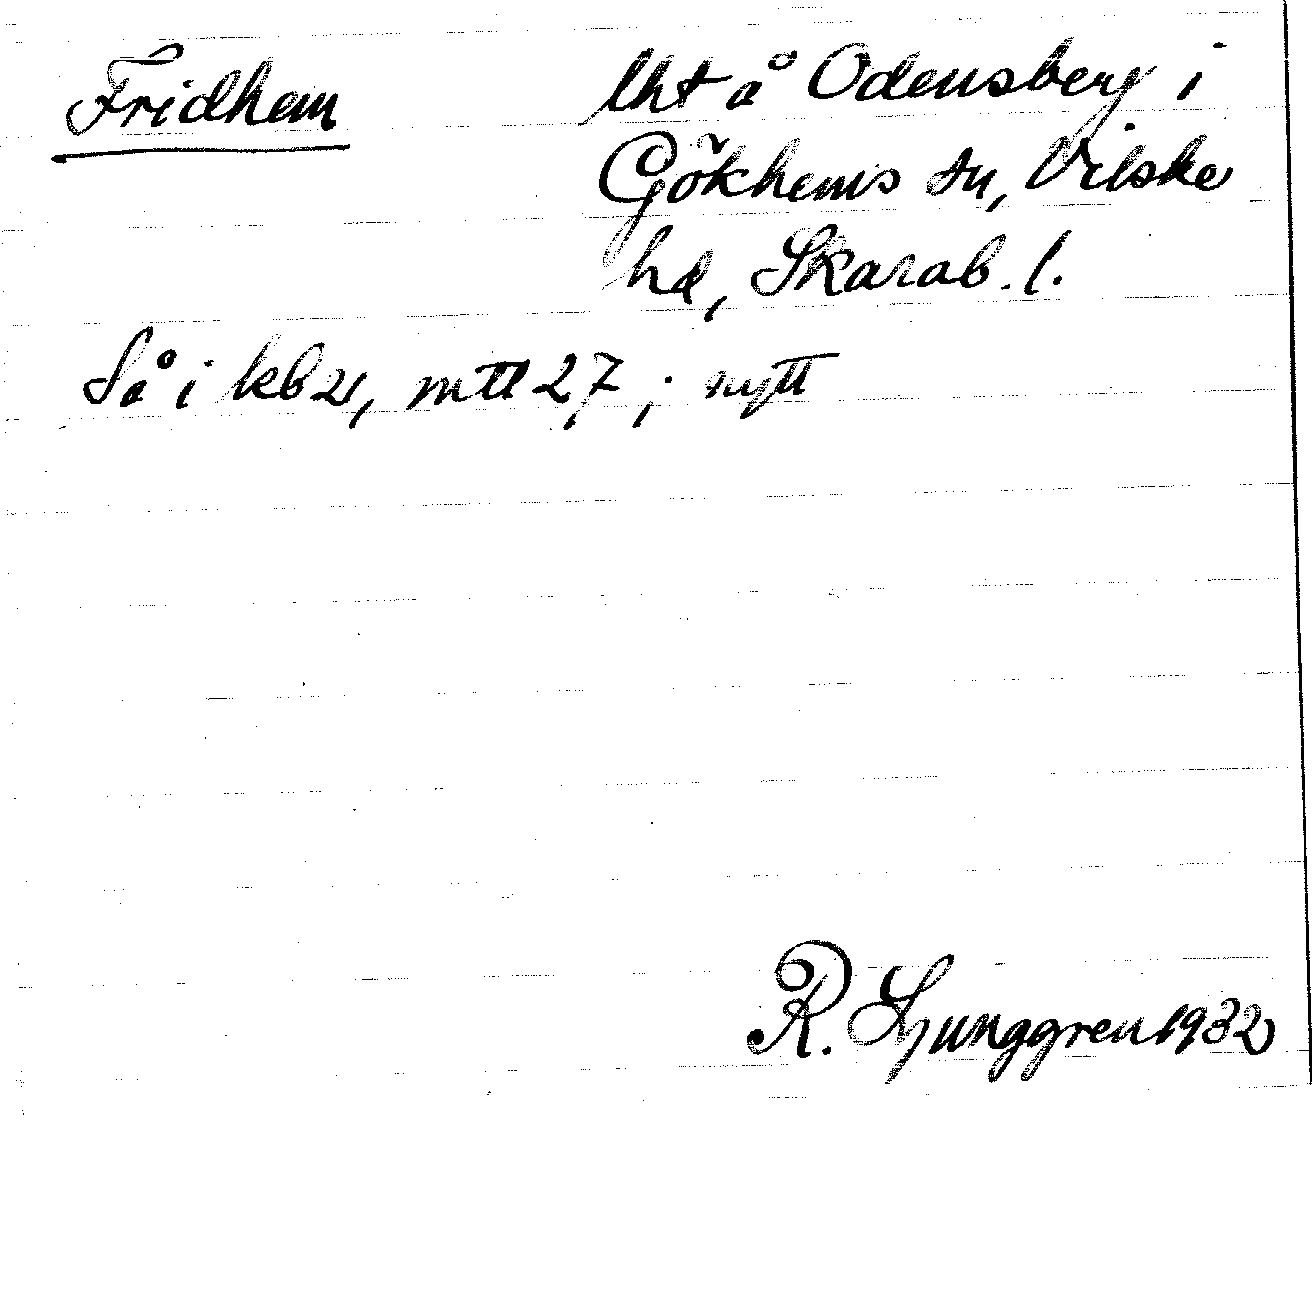 Fridhem
lht å Odensberg i
Gökhems sn, Vilske
hd, Skarab. l.
Så i kb 21, mtl 2,7; nytt
R. Ljunggren 1932